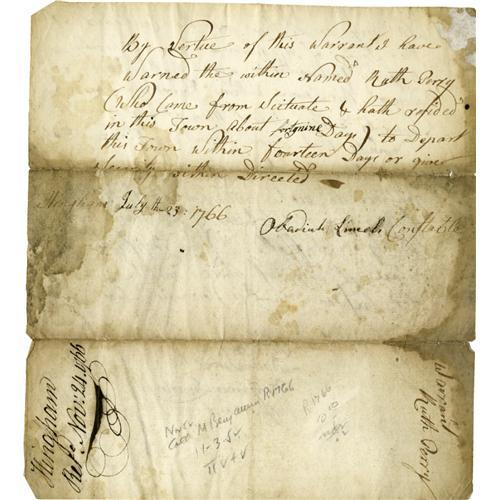 By Vertue of this Warrant I have
Warned the within Named Ruth Perry
(Who Came from Scituate & hath resided
in this Town about fortynine Days) to Depart
this Town within fourteen Days or give
Security within Directed
Hingham July th 23: 1766
Obadiah Lincoln Constable
Hingham
Warrant
Ruth Perry
M Benjamin R1766
11-3-54
R1766